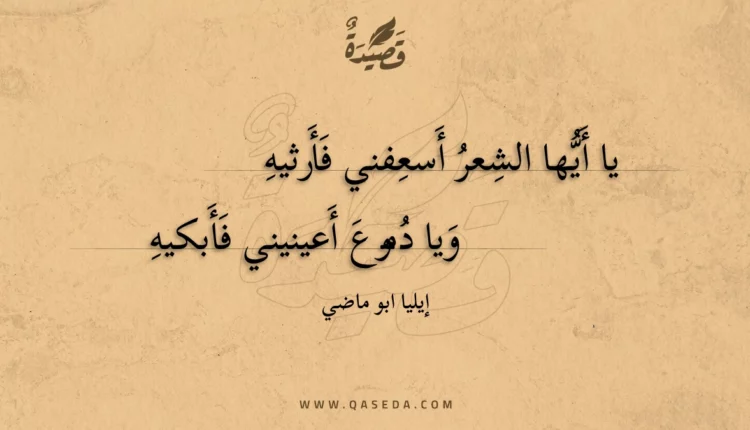 قَصِيْدَةٌ
يا أَيُّها الشِعرُ أَسعِفني فَأَرثيهِ
وَيا دُموعَ أَعينيني فَأَبكيهِ
إيليا ابو ماضي
WWW.QASEDA.COM